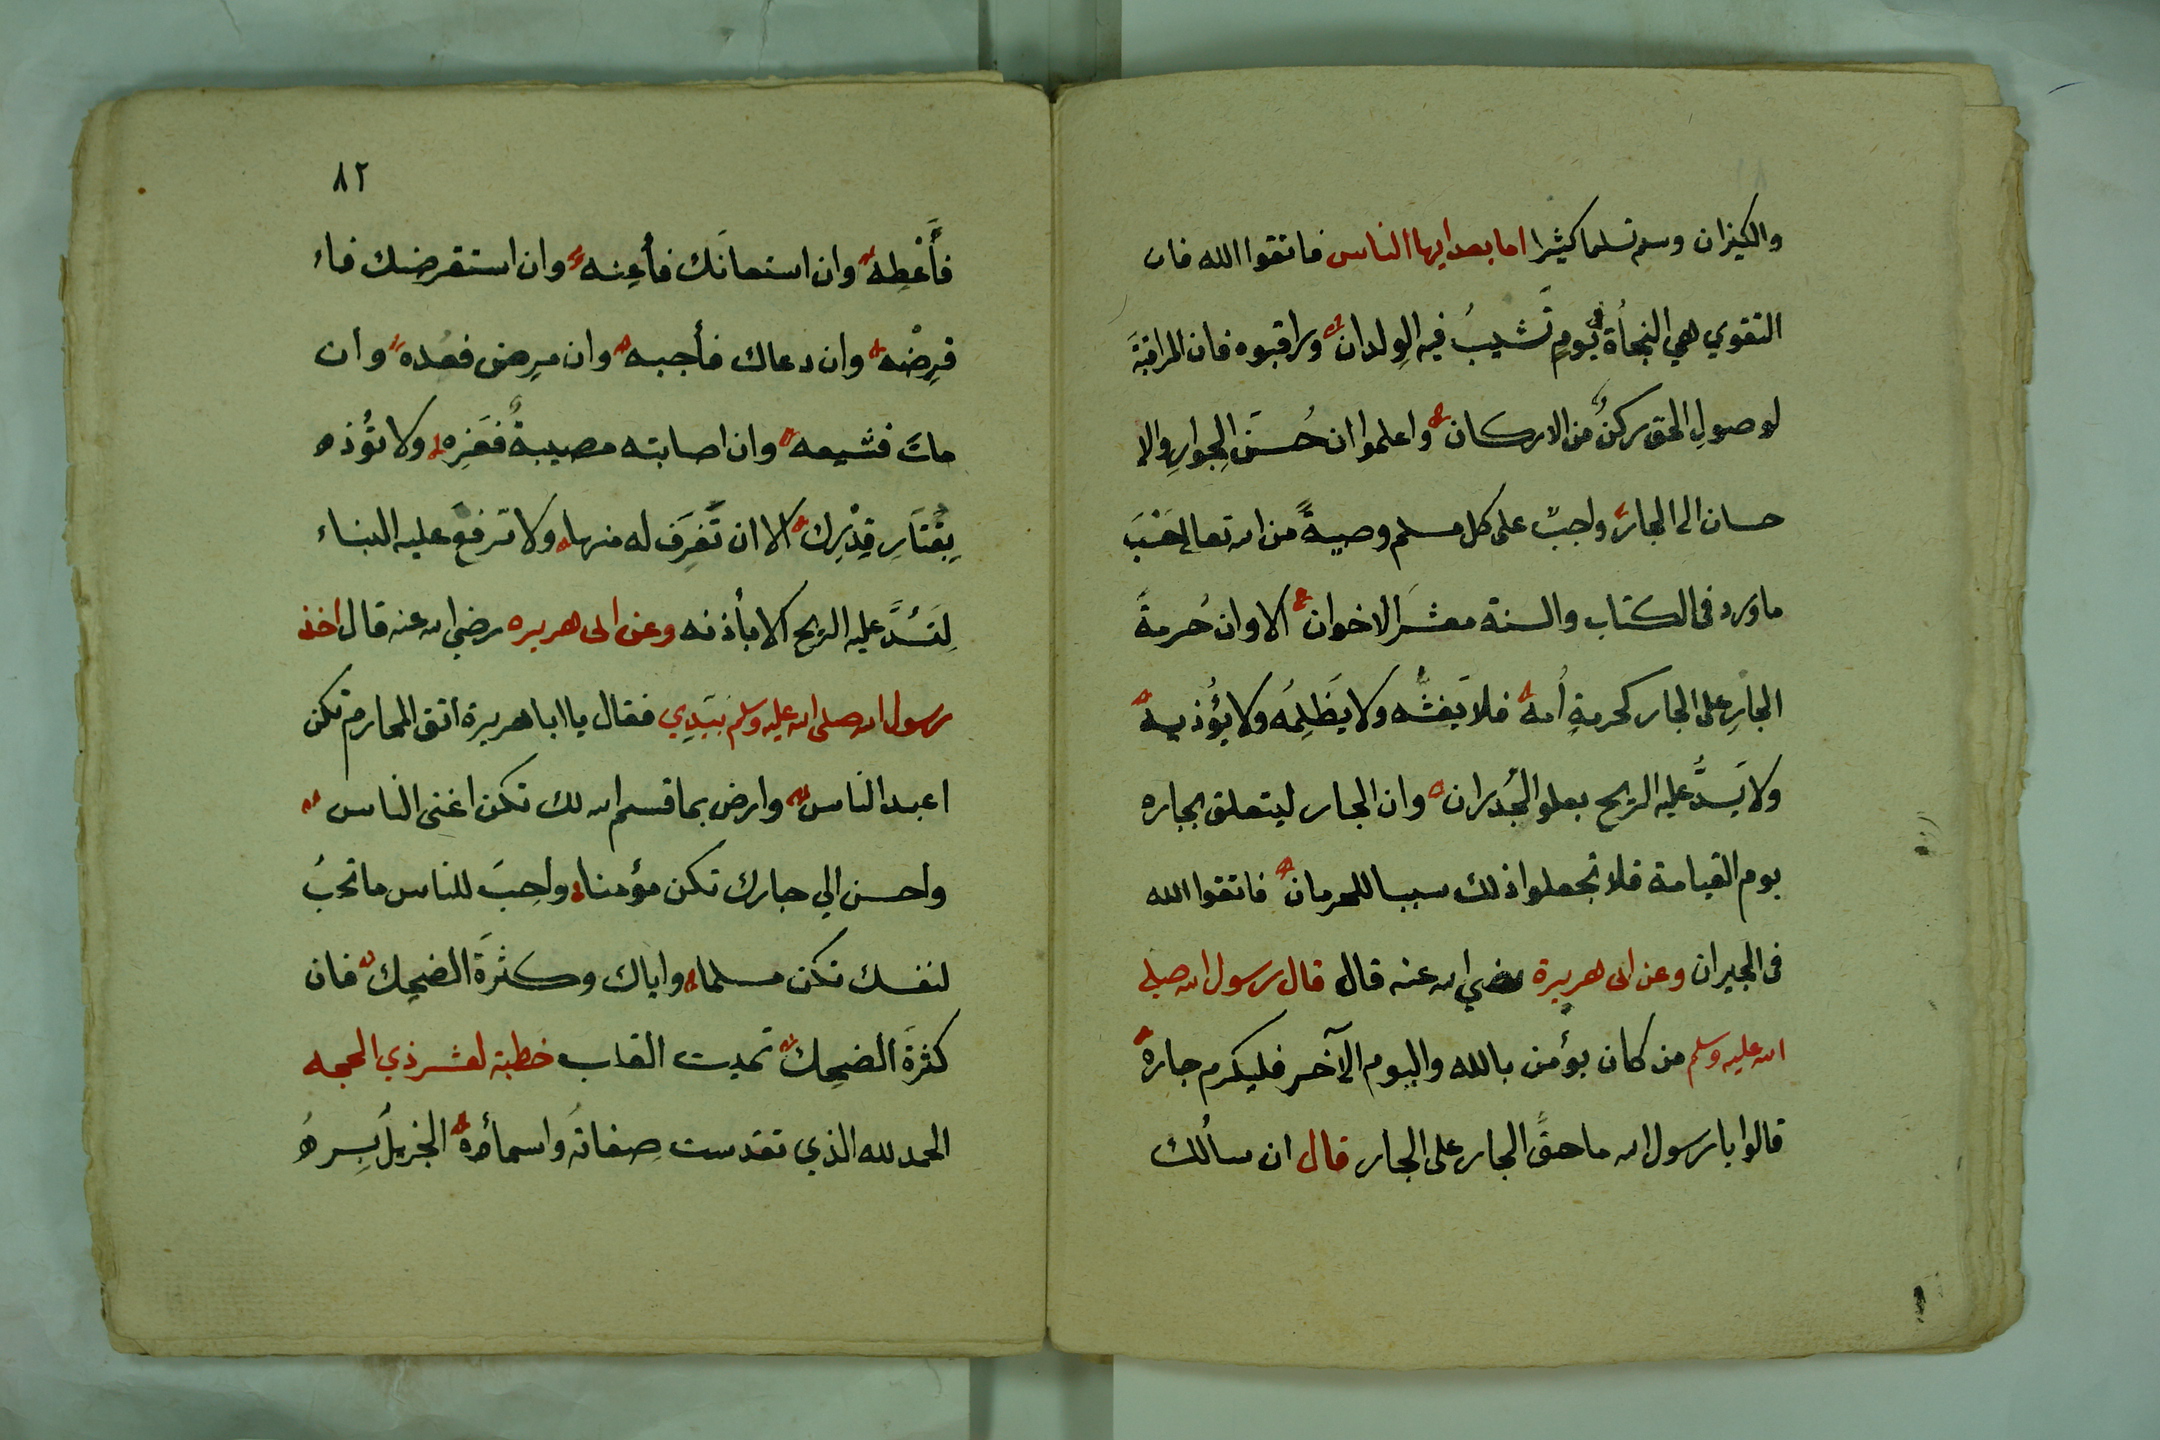 والكيزان وسلم تسلما كثيرا اما بعد ايها الناس فاتقوا الله فان
التقوي هي النجاة في يوم تَشيبُ فيه الوِلدان وراقبوه فان المراقبةَ
لوصولِ الحق ركنٌ من الاركان واعلموا ان حُسنَ الجِوارِ والا
حسان الى الجار واجبٌ على كل مسلم وصيةً من الله تعالى حَسْبَ
ما ورد في الكتاب والسنة معشَر الاخوان الا وان حُرمةَ
الجارِ على الجار كحرمةِ أُمه فلا يَغشُّه ولا يَظلِمُه ولا يُؤذيه
ولا يَسدُّ عليه الريح بعلو الجُدران وان الجار ليتعلق بجاره
يوم القيامة فلا تجعلوا ذلك سببا للحرمان فاتقوا الله
في الجيران وعن ابى هريرة رضي الله عنه قال قال رسول الله صلى
الله عليه وسلم من كان يؤمن بالله واليوم الآخر فليكرم جاره
قالوا يا رسول الله ما حقُّ الجار على الجار قال ان سألك
٨٢
فأَعْطِه وان استعانَك فأعِنه وان استقرضك فاء
قرِضْه وان دعاك فأجبه وان مرِض فعُده وان
ماتَ فشيعه وان اصابته مصيبةٌ فعَزِه ولا تؤُذه
بِقُتارِ قِدْرِك الا ان تَغرِفَ له منها ولا ترفع عليه البناء
لِتَسُدَّ عليه الريح الا بأذنه وعن ابى هريره رضي الله عنه قال اخذ
رسول الله صلى الله عليه وسلم بيَدِي فقال يا ابا هريرة اتق المحارم تكن
اعبد الناس وارض بما قسم الله لك تكن اغنى الناس
واحسن الي جارك تكن مؤمنا واحِبَ للناس ما تحبُ
لنفسك تكن مسلما واياك وكثرَة الضحِك فان
كثرَة الضحِك تميت القلب خطبة لعشر ذي الحجه
الحمد لله الذي تقدست صِفاتُه واسماؤُه الجزيلُ بِرهُ